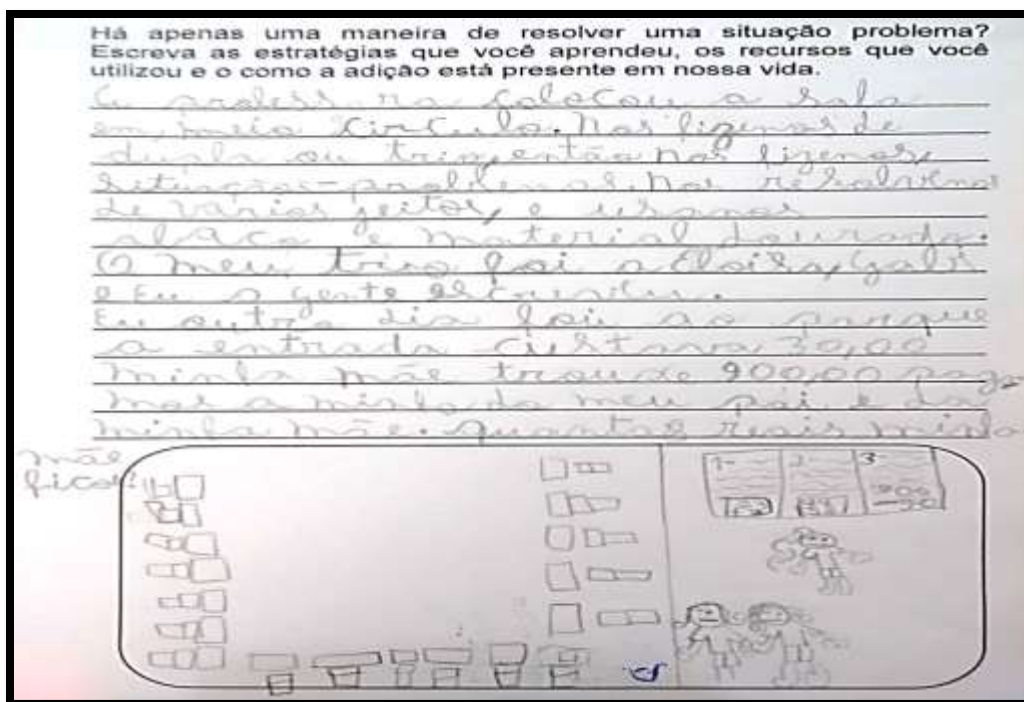 Há apenas uma maneira de resolver uma situação problema?
Escreva as estratégias que você aprendeu, os recursos que você
utilizou e o como a adição está presente em nossa vida.
a sala
em meio circulo. Nos fizemos de
dupla ou trio, então nos fizemos
situações-problemas. Nos resolvemos
de varios jeitos, e usamos
abaco e material dourado.
O meu trio foi a Eloisa, Gabi
e Eu a gente
Eu outro dia foi ao parque
a entrada custava 30,00
minha mãe trouxe 900,00
mas a minha do meu pai e da
minha mãe. quantos reais minha
mãe
1- 2- 3-
900